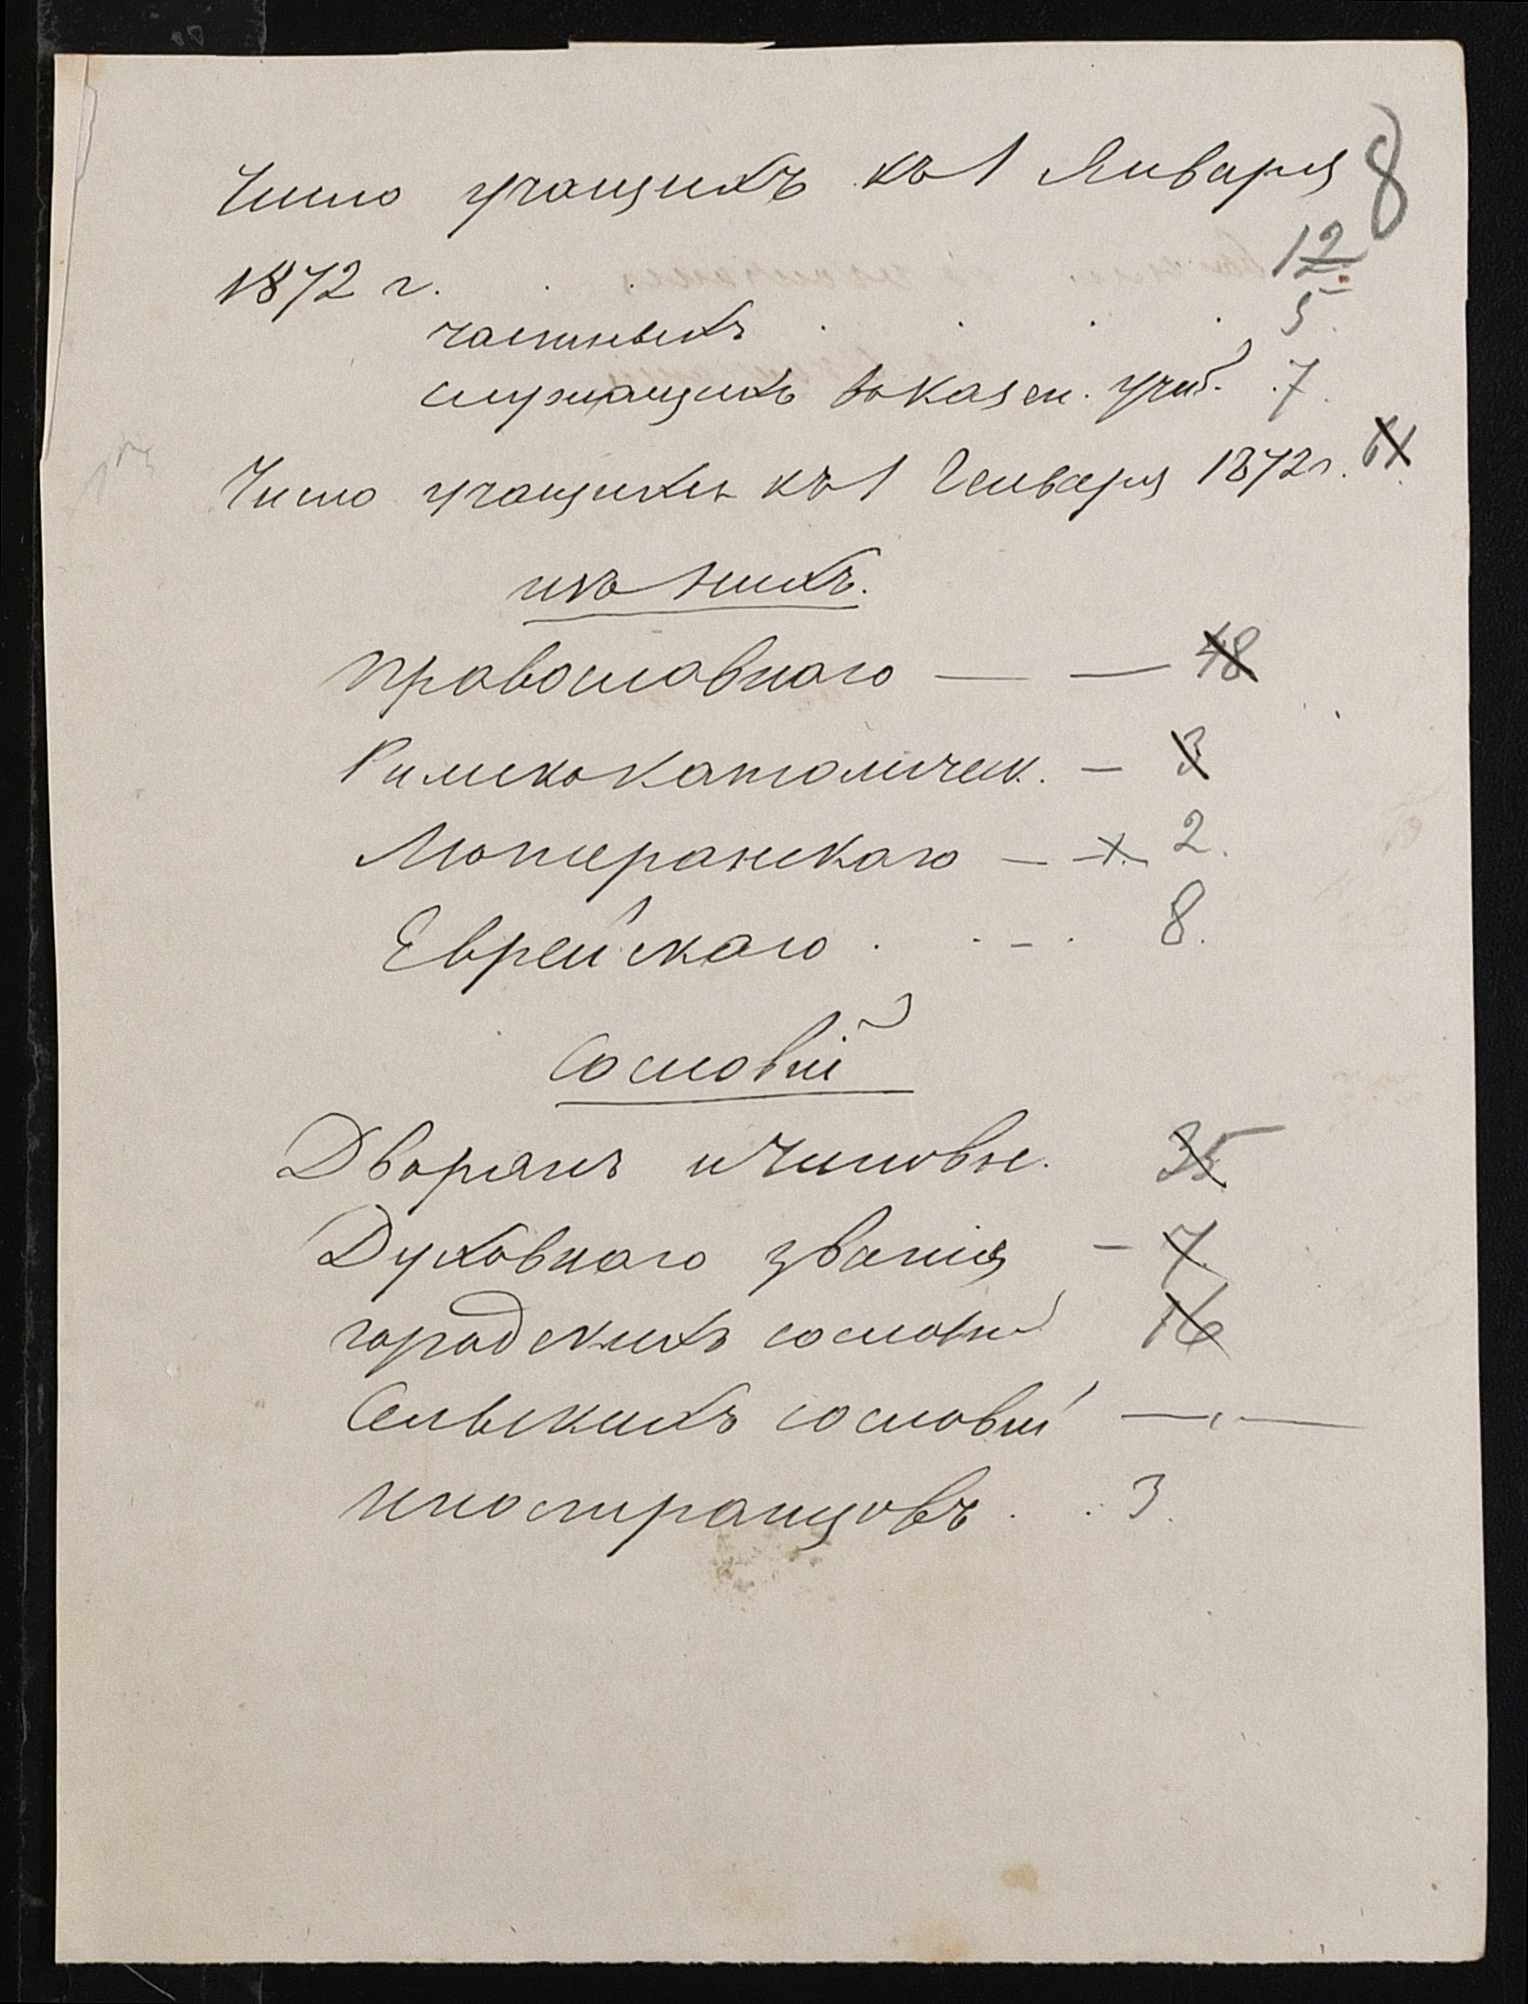 8
Число учащихъ къ 1 Января
1872 г. 12
частныхъ 5
служащихъ въ казен. учил. 7.
Число учащихся къ 1 Генваря 1872 г. 61
изъ нихъ.
Православнаго — — 48
Римскокатолическ. — 3
Лютеранскаго — — 2.
Еврейскаго . . — . 8.
Сословій
Дворянъ и Чиновн. 35
Духовнаго званія — 7.
городскихъ сословій 16
Сельскихъ сословій — „ —
Иностранцовъ . . 3.